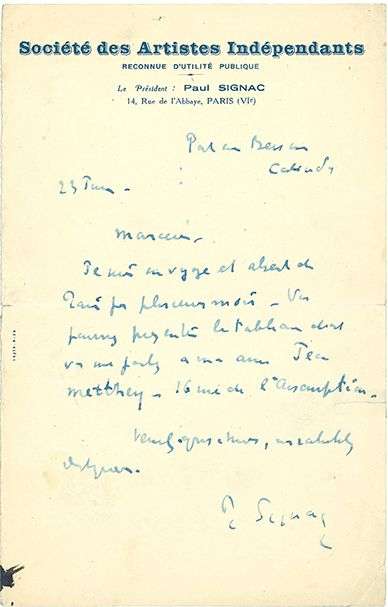 Société des Artistes Indépendants
RECONNUE D'UTILITÉ PUBLIQUE
Le Président : Paul SIGNAC
14, Rue de l'Abbaye, PARIS (VIe)
Port en Bessin
Calvados
23 Juin -
Monsieur -
Je suis en voyage et absent de
Paris pr plusieurs mois - Vs
pouvez présenter le tableau dont
vs me parlez a mon ami
Metthey - 16 rue de l'Assomption -
Veuillez
P Signac